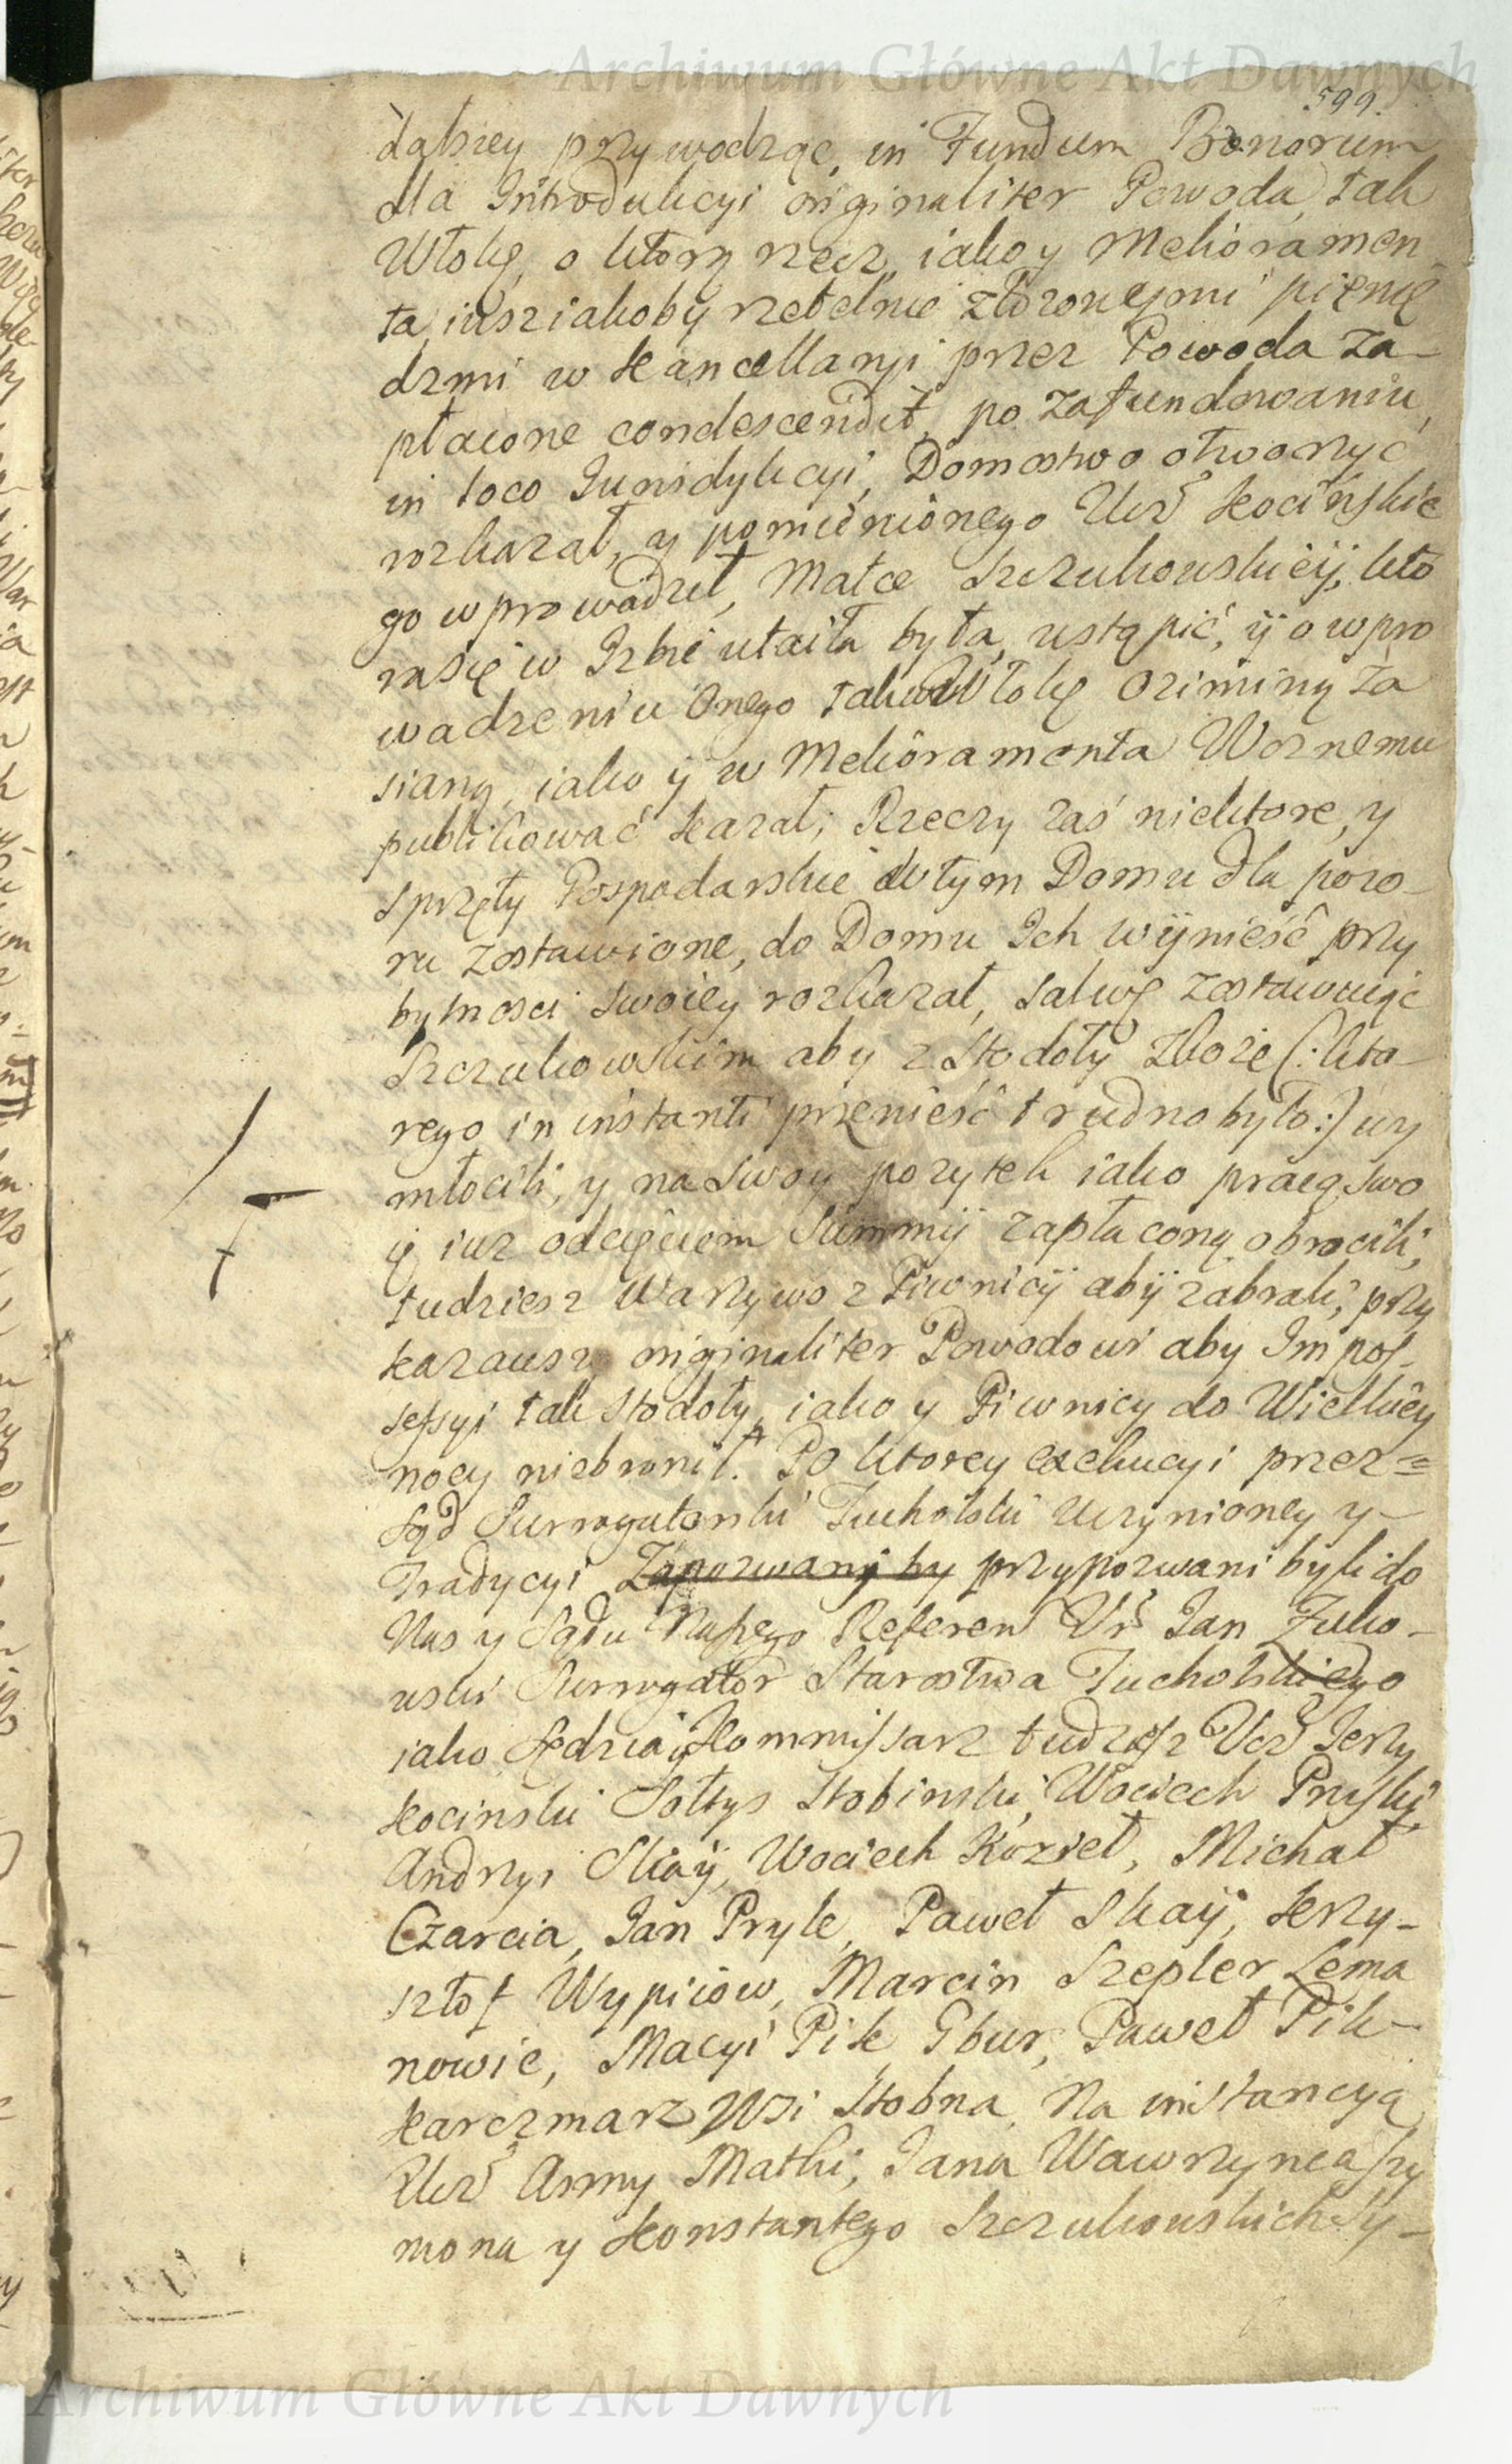 Archiwum Główne Akt Dawnych
599.
dalszey przywodząc, in Fundum Bonorum
dla Introdukcyi originaliter Powoda, tak
Włokę, o ktorą rzecz, iako y Melioramen
ta, iusz iakoby rzetelnie złożonejmi pienię
dzmi w Kancellaryi przez Powoda za-
płacone condescendit, po zafundowaniu,
in loco Jurisdykcyi, Domostwo otworzyć
rozkazał, y pomienionego Ucz Kocińskie
go wprowadził, Matce Szczukowskieÿ, kto
ra się w Izbie utaiła była, ustąpić, ÿ o wpro
wadzeniu Onego tak w Włokę Oziminą za
sianą, iako ÿ w Melioramenta Woznemu
publikować kazał; Rzeczy zaś niektore, y
sprzęty Gospodarskie w tym Domu dla pozo-
ru zostawione, do Domu Ich wÿnieść przy
bytności swoiey rozkazał, salwę zostawuiąc
Szczukowskim aby z Stodoły Zboże (: kto-
rego in instanti przenieść trudno było:) wy
młocili, y na swoy pozytek iako praeq swo
ię iuz odcięciem Summÿ zapłaconą obrocili,
tudziesz Warzywo z Piwnicÿ abÿ zabrali, przy
kazawsz originaliter Powodowi aby Im pos-
sessyi tak Stodoły, iako y Piwnicy do Wielkiey
nocy niebronił. Po ktorey exekucyi przez=
Sąd Surrogatorski Tucholski uczynioney y-
Tradycyi Zapozwanÿ by przypozwani byli do
Nas y Sądu Naszego Referen Ur Jan Zuko-
wski Surrogator Starostwa Tucholskiego
iako Sędzia y Kommissarz tudzesz Ucz Jerzy
Kocinski Sołtys Stobinski, Wociech Pryski,
Andrzyi Skaÿ, Wociech Kozieł, Michał
Czarcia, Jan Pryle, Paweł Skaÿ, Krzy-
sztof Wypiiow, Marcin Szepler Lema
nowie, Macyi Pik Gbur, Paweł Pik-
Karczmarz Wsi Stobna, Na instancyą
Ucz Anny Matki, Jana Wawrzynca Szy
mona y Konstantego Szczukowskich Sy-
Archiwum Główne Akt Dawnych